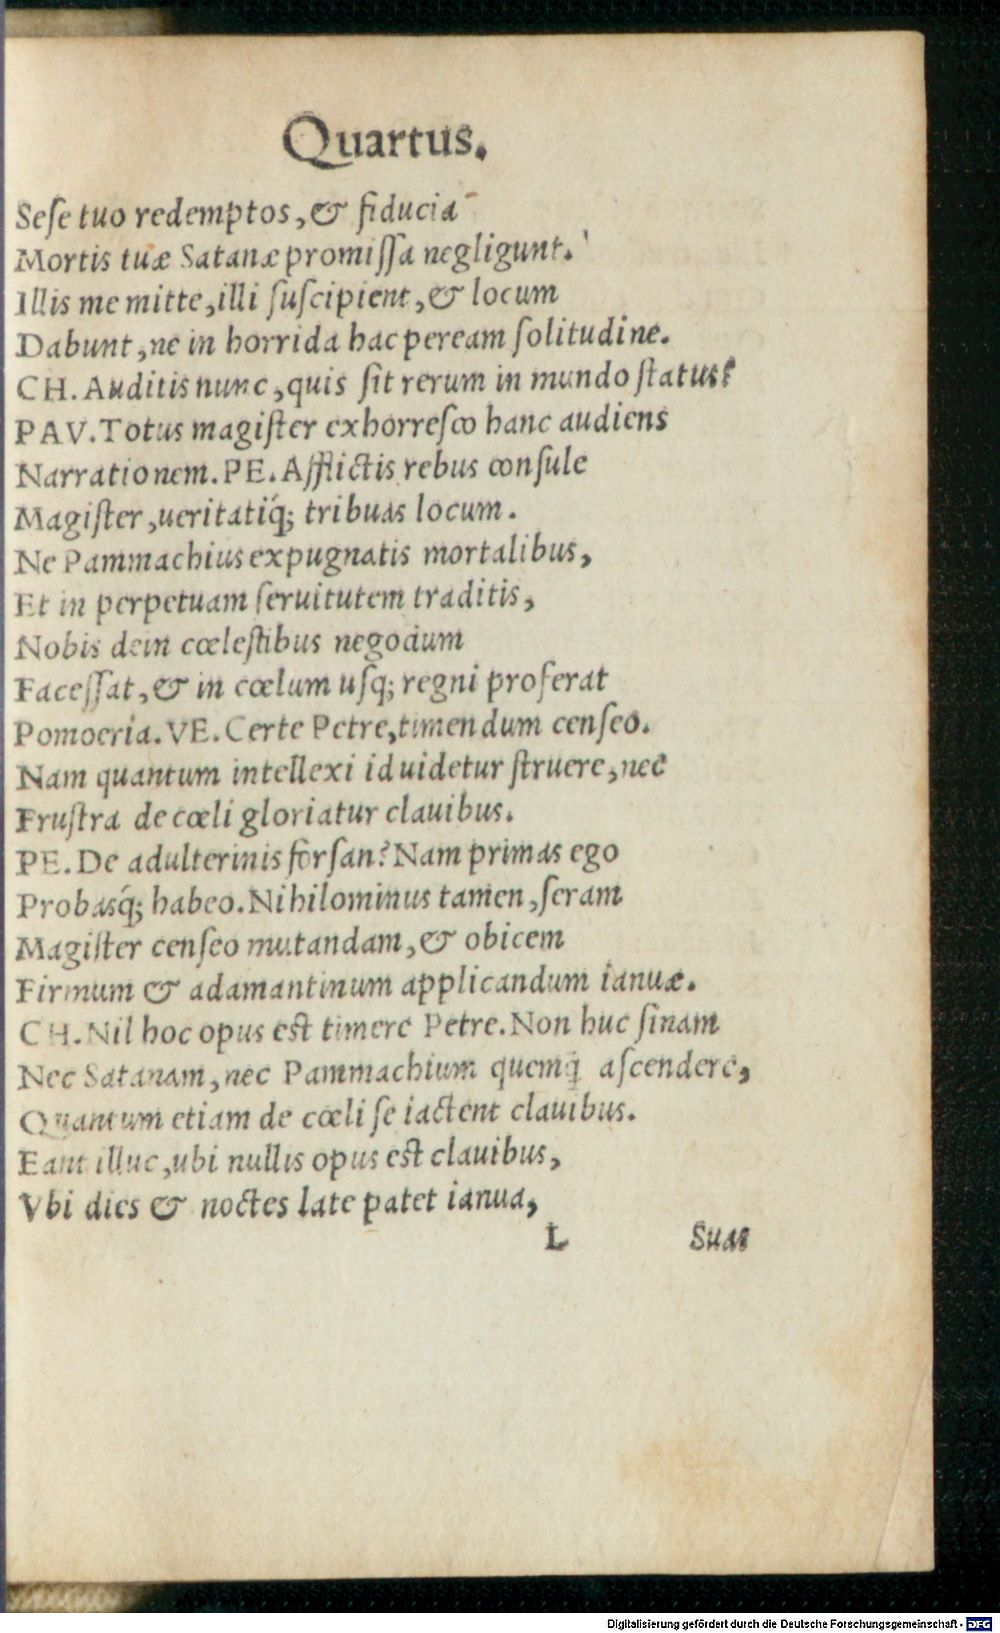 Quartus.
Seſe tuo redemptos, & fiducia
Mortis tuæ Satanæ promiſſa negligunt.
Illis me mitte, illi ſuſcipient, & locum
Dabunt, ne in horrida hac peream ſolitudine.
CH. Auditis nunc, quis ſit rerum in mundo ſtatus?
PAV. Totus magiſter exhorreſco hanc audiens
Narrationem. PE. Afflictis rebus conſule
Magiſter, ueritatiq́; tribuas locum.
Ne Pammachius expugnatis mortalibus,
Et in perpetuam ſeruitutem traditis,
Nobis dein cœleſtibus negocium
Faceſſat, & in cœlum uſq; regni proferat
Pomoeria. VE. Certe Petre, timendum cenſeo.
Nam quantum intellexi id uidetur ſtruere, nec
Fruſtra de cœli gloriatur clauibus.
PE. De adulterinis forſan? Nam primas ego
Probasq́; habeo. Nihilominus tamen, ſeram
Magiſter cenſeo mutandam, & obicem
Firmum & adamantinum applicandum ianuæ.
CH. Nil hoc opus eſt timere Petre. Non huc ſinam
Nec Satanam, nec Pammachium quemq̃ aſcendere,
Quantum etiam de cœli ſe iactent clauibus.
Eant illuc, ubi nullis opus eſt clauibus,
Vbi dies & noctes late patet ianua,
L Suas
Digitalisierung gefördert durch die Deutsche Forschungsgemeinschaft - DFG